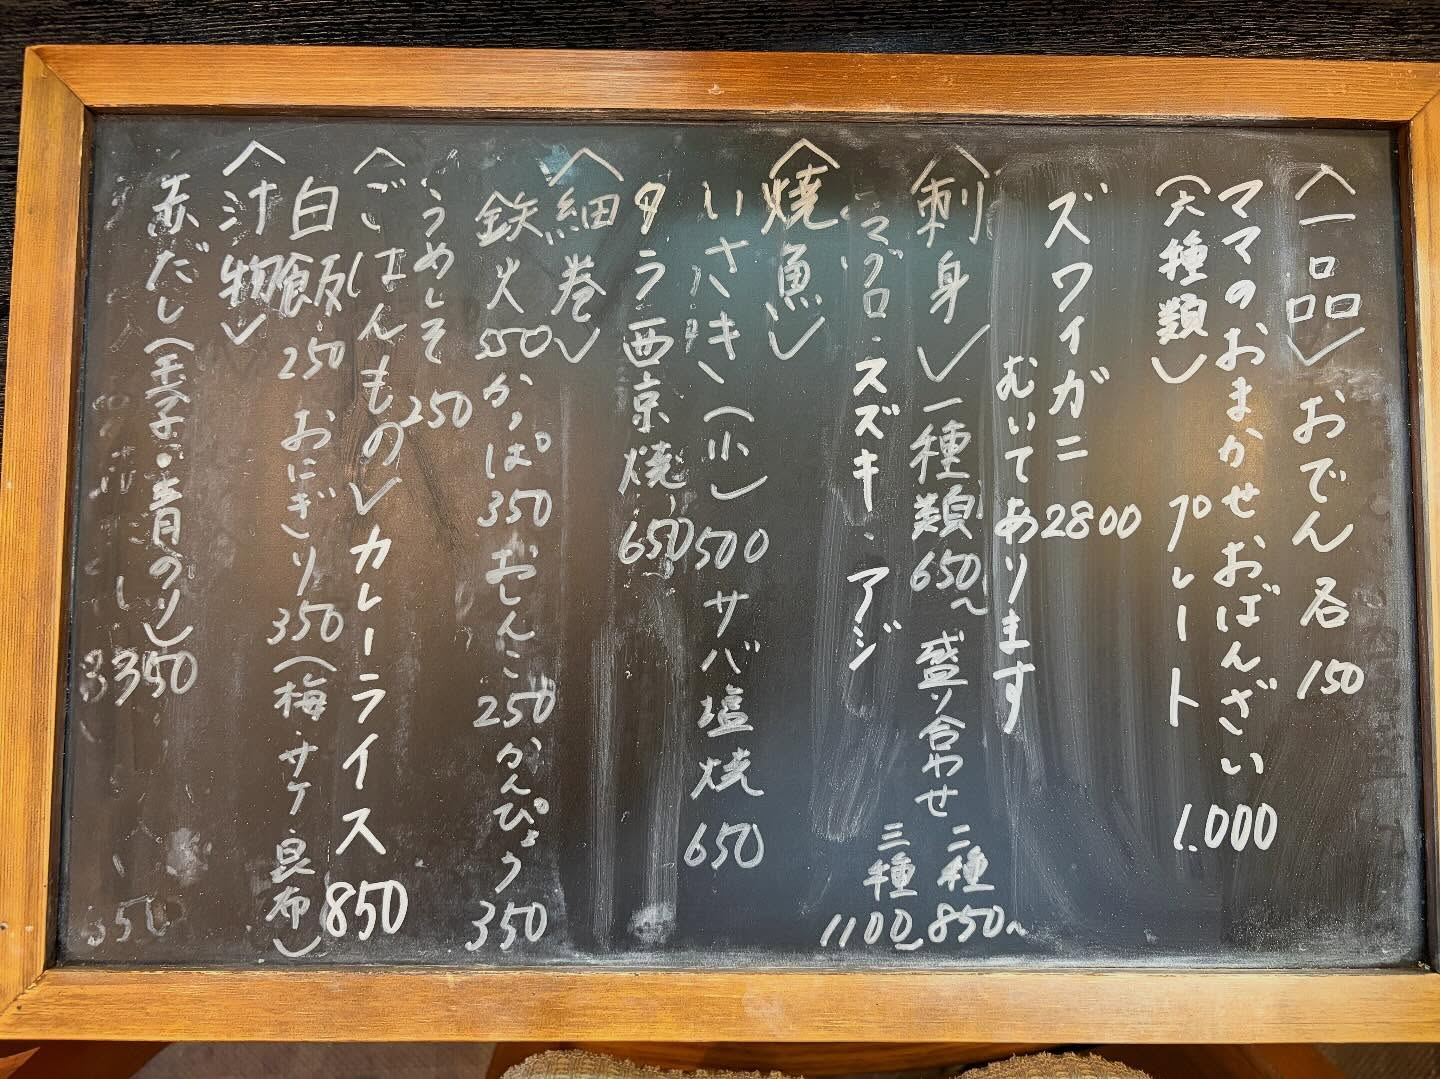 〈一品〉おでん 各 150
ママのおまかせおばんざい
(六種類) プレート 1.000
ズワイガニ 2800
むいてあります
〈刺身〉一種類 650〜 盛り合わせ 二種 850〜
三種 1100〜
マグロ・スズキ・アジ
〈焼魚〉
いさき(小) 500 サバ塩焼 650
タラ西京焼 650
〈細巻〉
鉄火 550 かっぱ 350 おしんこ 250 かんぴょう 350
うめしそ 250
〈ごはんもの〉カレーライス 850
白飯 250 おにぎり 350 (梅・サケ・昆布)
〈汁物〉
赤だし(玉子・青のり) 350